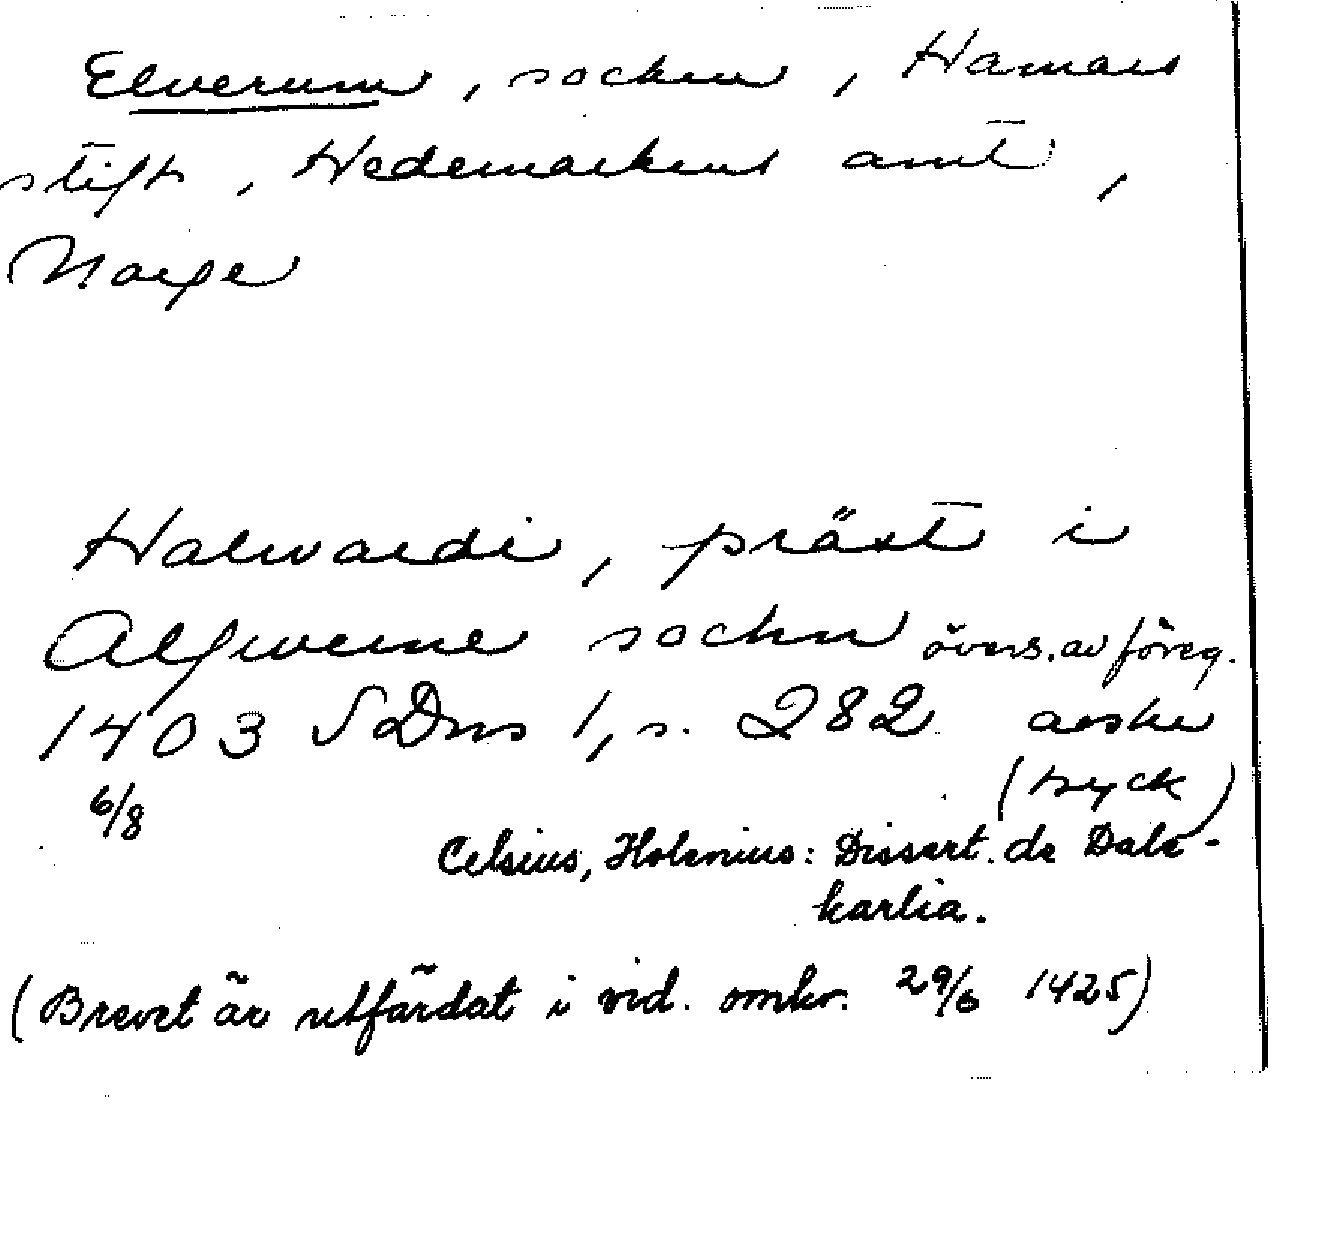 Elverum, socken, Hamars
stift, Hedemarkens amt,
Norge
Halwardi, präst i
Alfwerne sockn övers. av föreg.
1403 SDns 1, s. 282 avskr
6/8 (tryck)
Celsius, Holenius: Dissert. de Dale-
karlia.
(Brevet är utfärdat i vid. omkr. 29/6 1425)